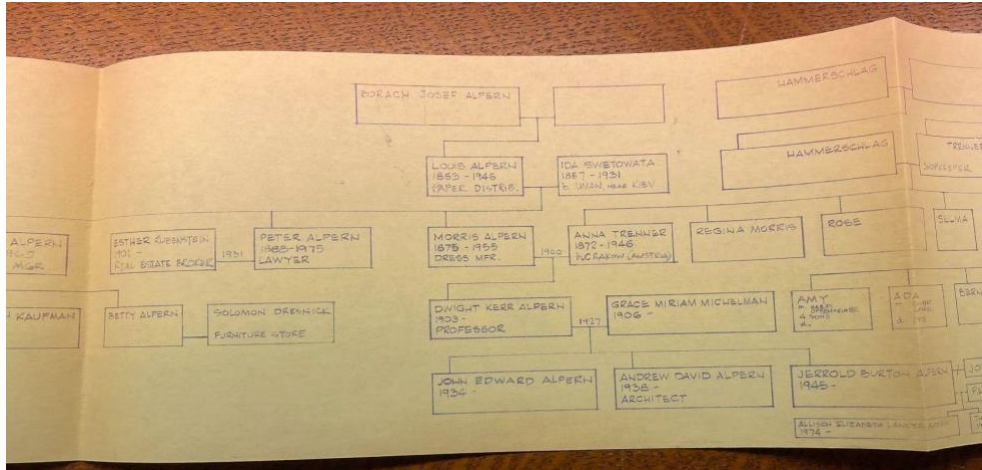 BORACH JOSEF ALPERN
HAMMERSCHLAG
LOUIS ALPERN
1853 - 1945
PAPER DISTRIB.
IDA SWETOWATA
1857 - 1931
b. UMAN, NEAR KIEV
HAMMERSCHLAG
SHOPKEEPER
ALPERN
MGR
ESTHER RUBENSTEIN
REAL ESTATE BROKER
1931
PETER ALPERN
1888-1975
LAWYER
MORRIS ALPERN
1875 - 1955
DRESS MFR.
1900
ANNA TRENNER
1872 - 1946
b. CRAKOW (AUSTRIA)
REGINA MORRIS
ROSE
SELMA
KAUFMAN
BETTY ALPERN
SOLOMON DRESNICK
FURNITURE STORE
DWIGHT KERR ALPERN
1903 -
PROFESSOR
1927
GRACE MIRIAM MICHELMAN
1906 -
AMY
4 SONS
d.
ADA
d.
JOHN EDWARD ALPERN
1934 -
ANDREW DAVID ALPERN
1938 -
ARCHITECT
JERROLD BURTON ALPERN
1945 -
ALLISON ELIZABETH
1974 -